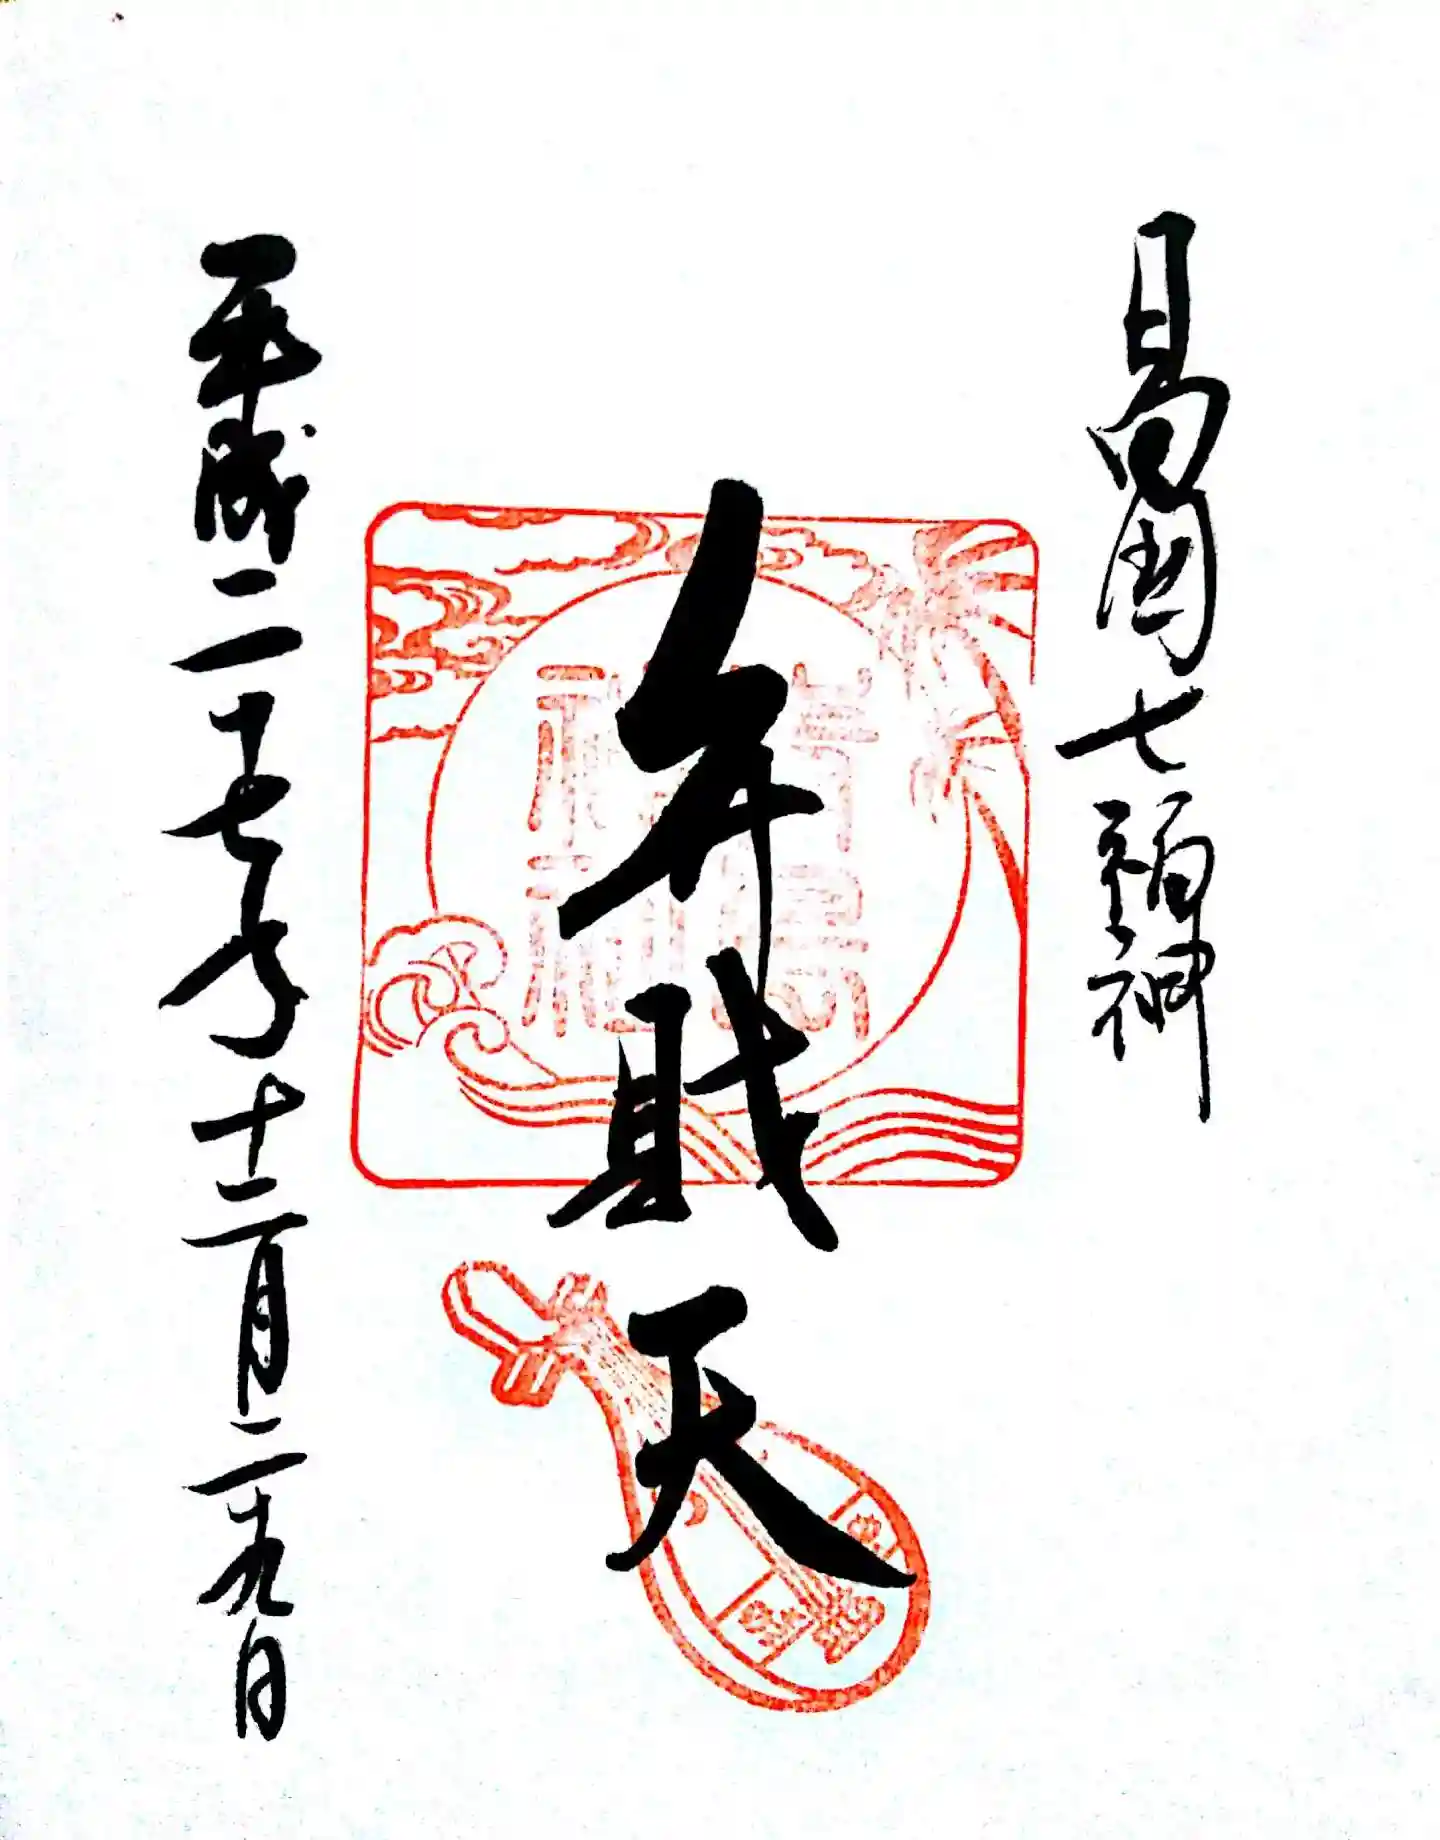 日向国七福神
弁財天
青島神社
平成二十七年十二月二十九日